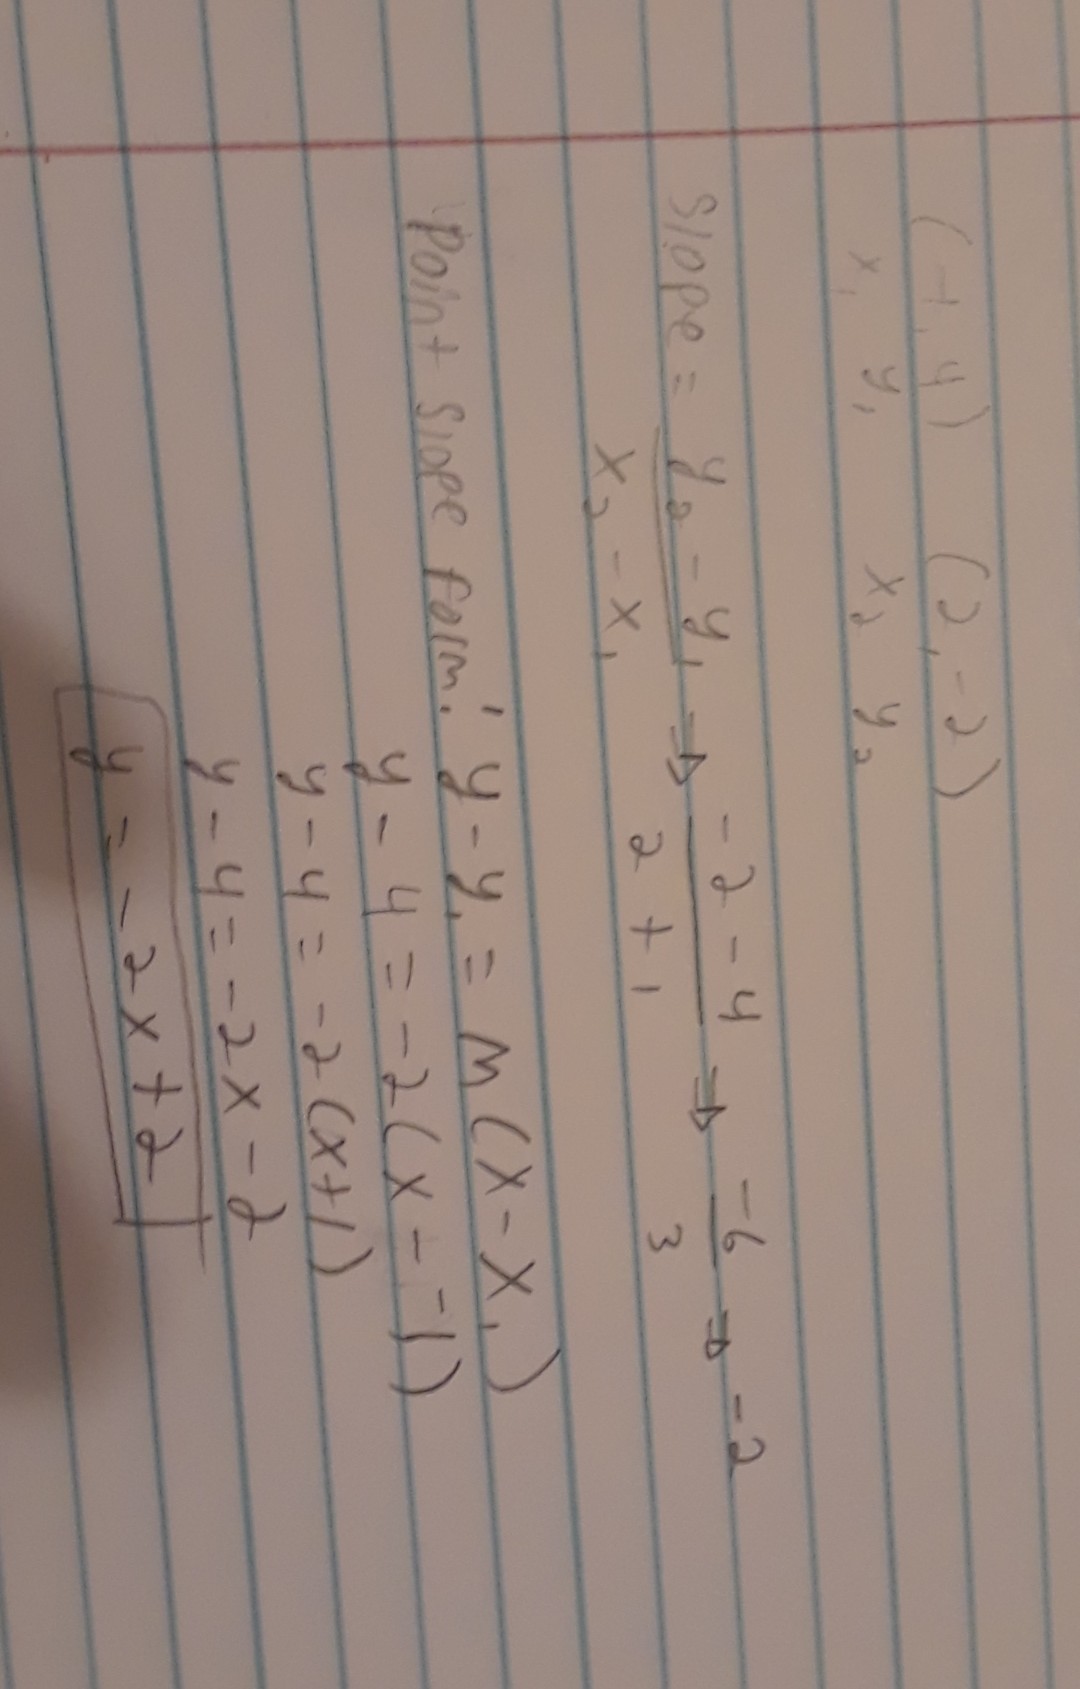 (-1, 4) (2, -2)
x₁ y₁ x₂ y₂
Slope = y₂ - y₁ → -2 - 4 → -6 → -2
x₂ - x₁ 2 + 1 3
Point slope form: y - y₁ = m (x - x₁)
y - 4 = -2 (x - -1)
y - 4 = -2 (x+1)
y - 4 = -2x - 2
y = -2x + 2